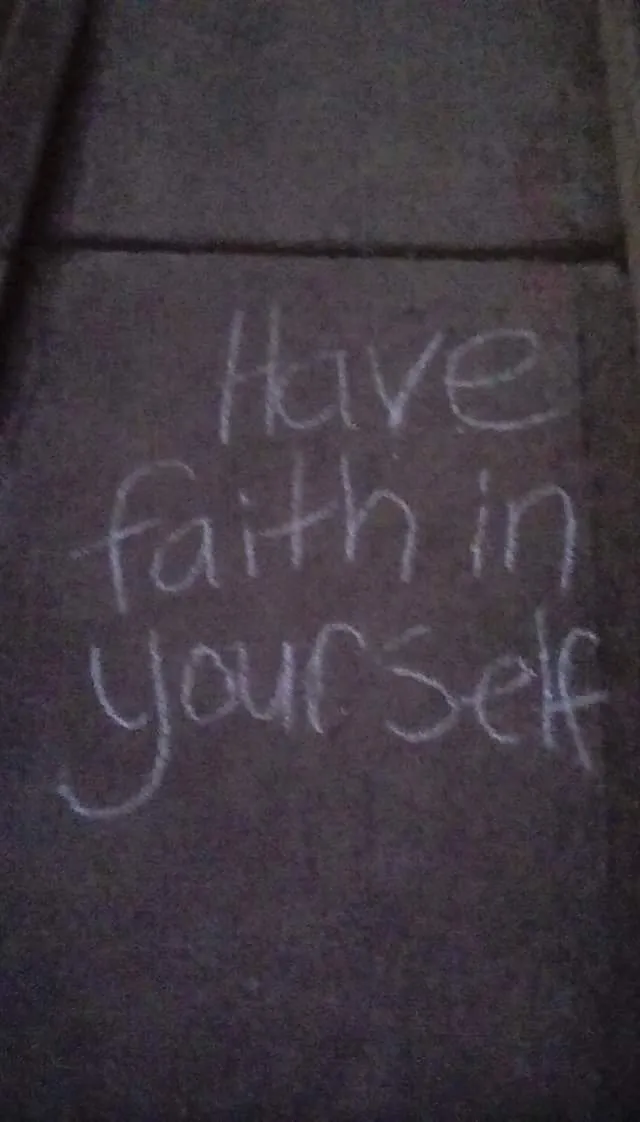 Have
faith in
yourself